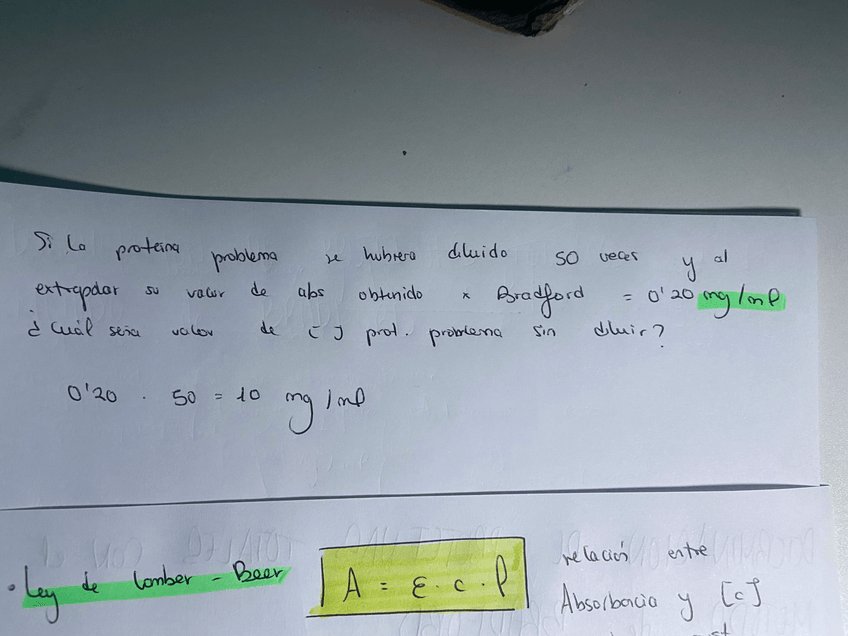 Si la proteína problema se hubiera diluido 50 veces y al
extrapolar su valor de abs obtenido x Bradford = 0'20 mg/ml
¿Cuál sería valor de [ ] prot. problema sin diluir?
0'20 · 50 = 10 mg/ml
• Ley de Lamber - Beer
A = ε · c · l
relación entre
Absorbancia y [c]